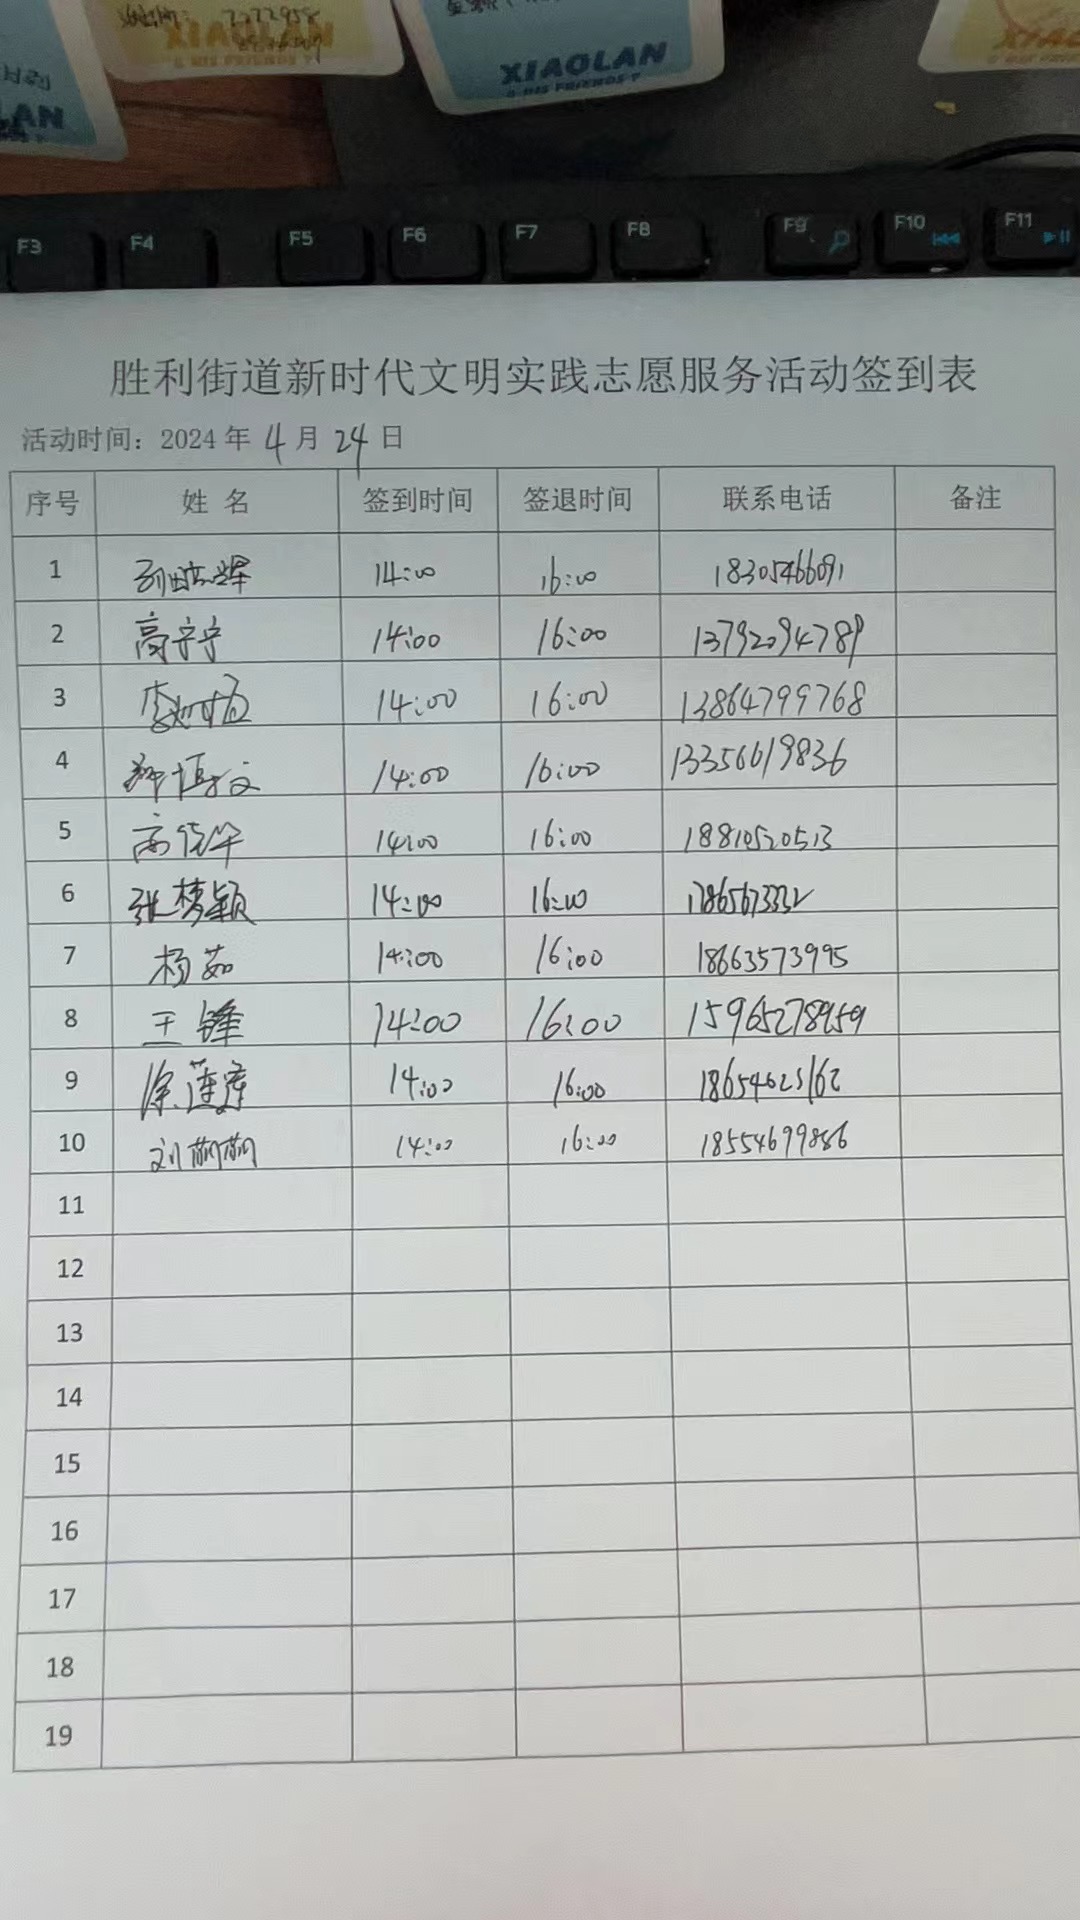 7272958
XIAOLAN
& HIS FRIENDS
XIAOLAN
& HIS FRIENDS
F3 F4 F5 F6 F7 F8 F9 F10 F11
胜利街道新时代文明实践志愿服务活动签到表
活动时间：2024 年 4 月 24 日
序号 姓 名 签到时间 签退时间 联系电话 备注
1 14:00 16:00 18305466091
2 高宁宁 14:00 16:00 13792094789
3 14:00 16:00 13864799768
4 14:00 16:00 13356619836
5 14:00 16:00 18810520513
6 张梦颖 14:00 16:00
7 杨茹 14:00 16:00 18663573995
8 王锋 14:00 16:00 15965278959
9 徐莲 14:00 16:00 18654625162
10 刘萌萌 14:00 16:00 18554699886
11
12
13
14
15
16
17
18
19